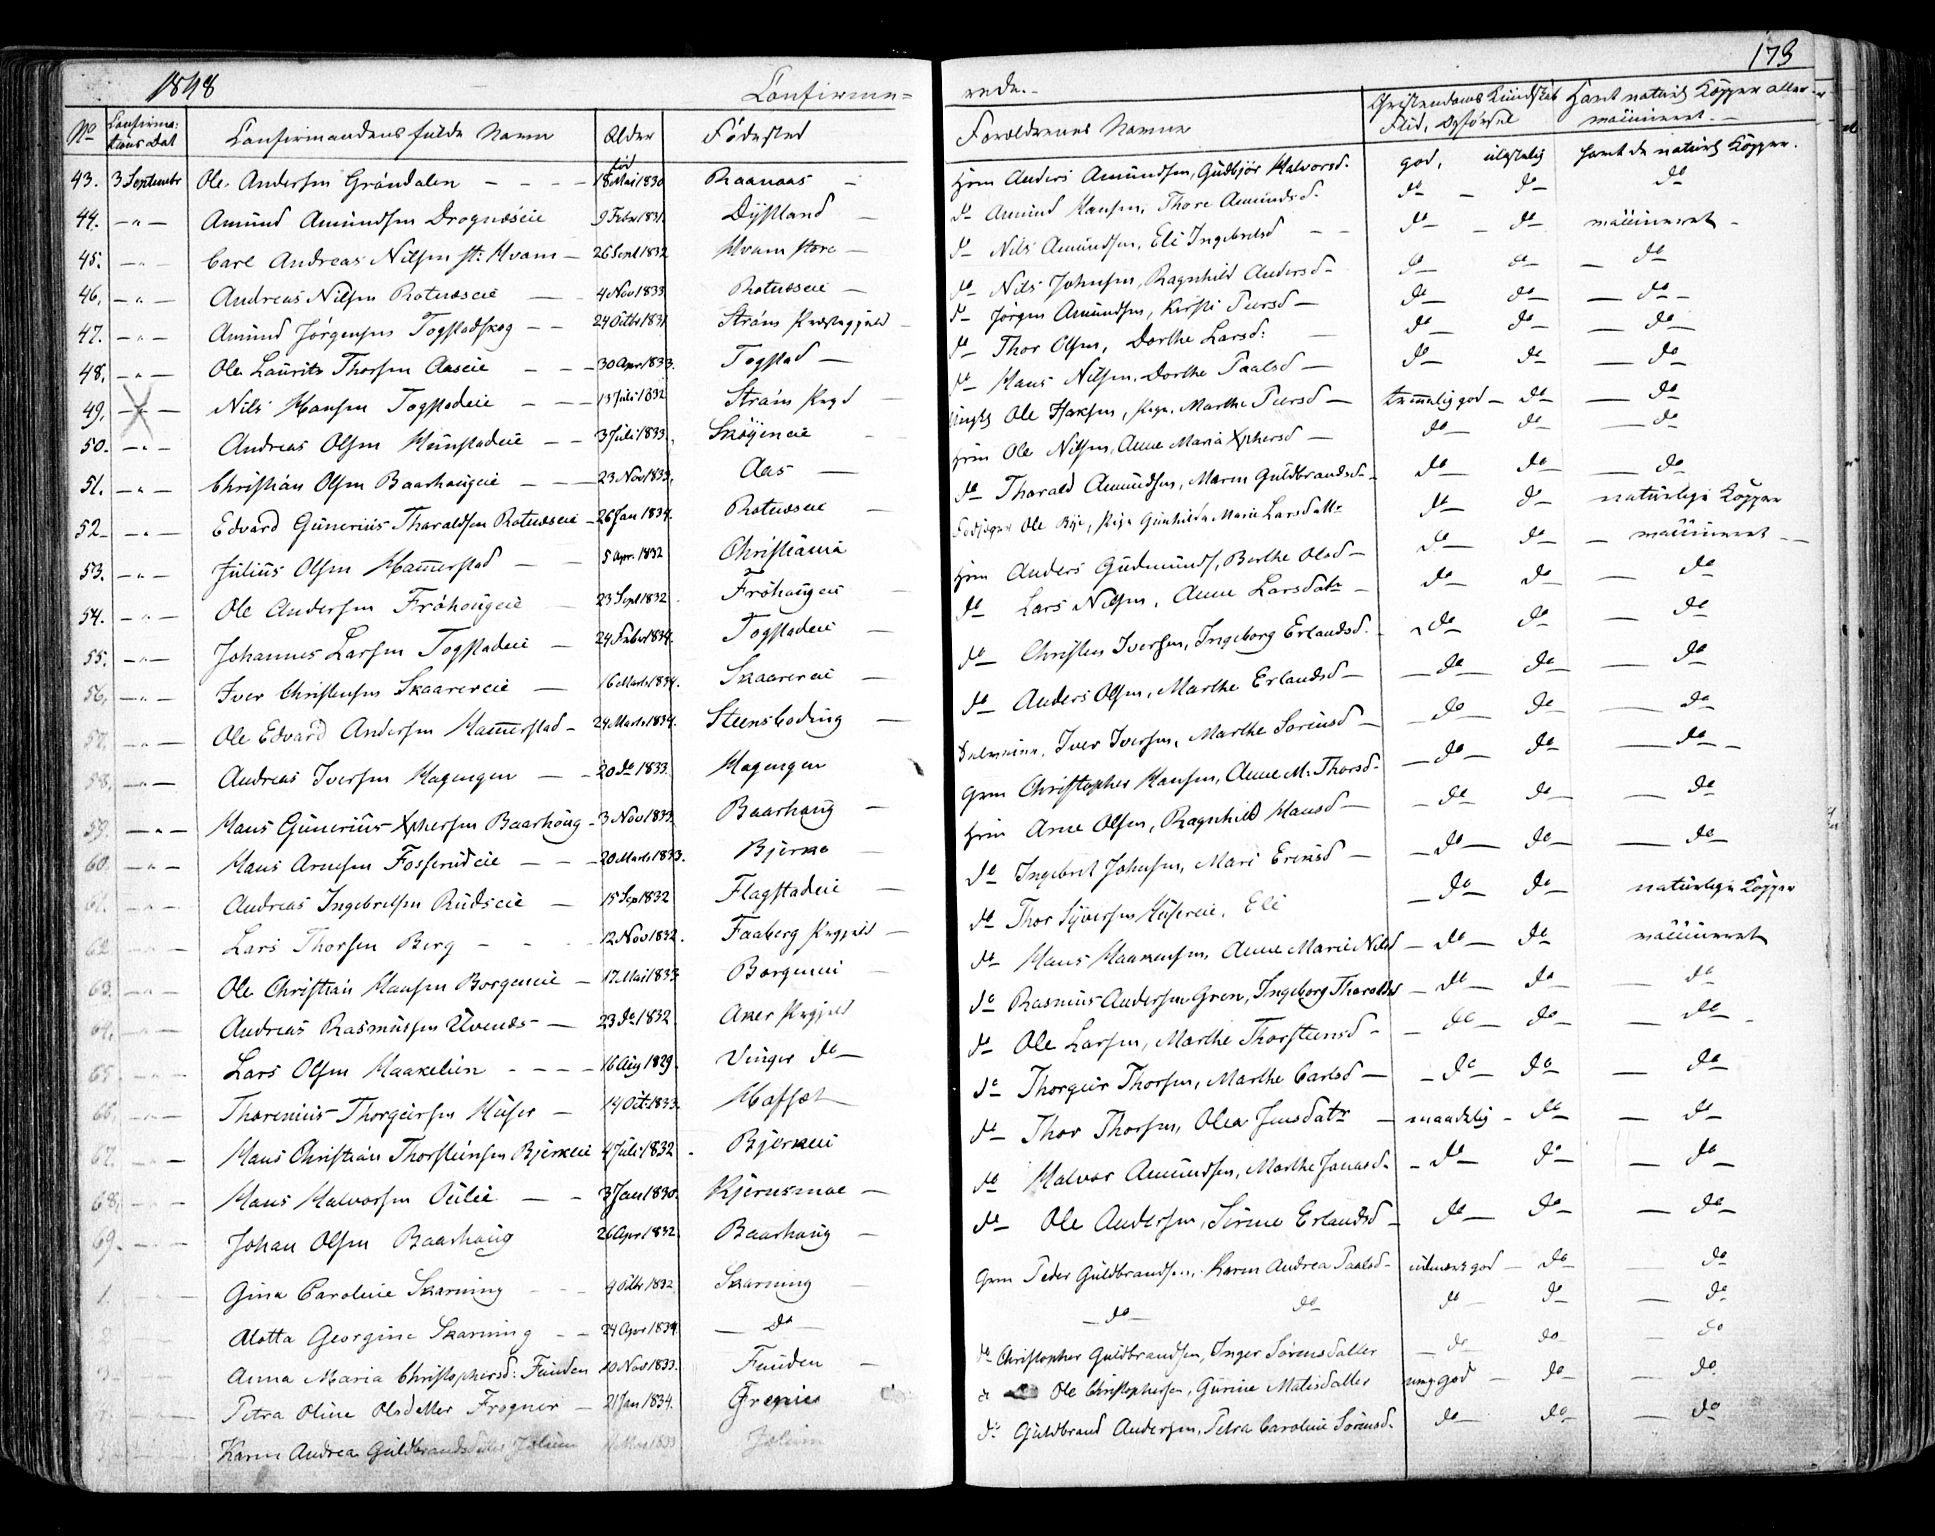 1848 Confirme= rede.- 173
No Confirma: tions Dat Confirmandens fulde Navn Alder Fødested Forældrenes Navne Christendoms Kundskab Flid, Opførsel Havt naturl Kopper eller vaccineret.-
43. 3 Septembr Ole Andersen Grøndalen - - - 18 Mai 1830 Raanaas - Hm Anders Amundsen, Gudbjør Halvorsd. god, ulastelig havt de naturl Kopper.
44. -"- Amund Amundsen Drognæseie 9 Febr 1831 Dystland - do Amund Hansen, Thore Amundsd. do - do do
45. -"- Carl Andreas Nilsen st: Hvam - 26 Sept 1832 Hvam store - do Nils Amundsen, Eli Ingebretsd - - do - do vaccineret -
46. -"- Andreas Nilsen Rotnæseie - - 4 Nov 1833 Rotnæseie - do Nils Johnsen, Ragnhild Andersd - do do - do
47. -"- Amund Jørgensen Togstadskog - - 24 Octbr 1831 Strøms Præstegjeld - do Jørgen Amundsen, Kirsti Peersd - do do - do -
48. -"- Ole Lauritz Thorsen Aaseie - - - 30 Apr 1833. Togstad - do Thor Olsen, Dorthe Larsd: do do - do
49. -"- Nils Hansen Togstadeie - - - 13 Juli 1832 Strøms Prgd - do Hans Nilsen, Dorthe Paalsd - do do - do
50. -"- Andreas Olsen Hunstadeie - - 3 Juli 1833. Skøyeneie - Ungk Ole Hansen, Pige. Marthe Peersd - temmelig god - do - do
51. -"- Christian Olsen Baarhaugeie - - - 23 Nov 1833. Aas - Hm Ole Nilsen, Anne Maria Xphersd - do do - do
52 -"- Edvard Gunerius Tharaldsen Rotnæseie - 26 Jan 1834. Rotnæseie - do Tharald Amundsen, Maren Guldbrandsd. do do - do
53. -"- Julius Olsen Hammerstad - - 5 Apr. 1832 Christiania Ole Bye, Pige Gunhilda Marie Larsdattr do do naturlige Kopper
54. -"- Ole Andersen Frøhougeie - 23 Sept 1832. Frøhaugeie - Hm Anders Gudmunds, Berthe Olsd - do do - vaccineret -
55. -"- Johannes Larsen Togstadeie - 24 Febr 1834. Togstadeie - do Lars Nilsen, Anne Larsdatr - do do - do
56. -"- Iver Christensen Skaarereie - 16 Marts 1834. Skaarereie - do Christen Iversen, Ingeborg Erlandsd. do do - do
57. -"- Ole Edvard Andersen Hammerstad - 24 Marts 1834. Steensboding - do Anders Olsen, Marthe Erlandsd - do - do - do
58. -"- Andreas Iversen Hagengen - - 20 do 1833. Hagengen Iver Iversen, Marthe Sørensd - do - do - do
59. -"- Hans Gunerius Xphersen Baarhoug - 3 Nov 1833. Baarhaug - Grm Christopher Hansen, Anne M. Thorsd. do - do - do -
60. -"- Hans Arnesen Fosserudeie - - - 20 Marts 1833. Bjerke - Hm Arne Olsen, Ragnhild Hansd - do do - do
61. -"- Andreas Ingebretsen Rudseie - - 15 Sep 1832 Flagstadeie - do Ingebret Johnsen, Mari Eriksd - do - do - do
62. -"- Lars Thorsen Berg - - - 12 Nov 1832. Faaberg Prgjeld - do Thor Syversen Husereie, Eli do do naturlige Kopper
63. -"- Ole Christian Hansen Borgeneie - 17 Mai 1833 Borgeneie - do Hans Haakensen, Anne Marie Nilsd - do - do vaccineret
64. -"- Andreas Rasmussen Uvends - 23 do 1832. Aker Prgjeld do Rasmus Andersen Gren, Ingeborg Tharaldsd - do - do - do
65. -"- Lars Olsen Haakelien - - - 16 Aug 1829. Vinger do - do Ole Larsen, Marthe Thorsteensd - do - do - do -
66. -"- Thorenius Thorgeirsen Huser - 14 Oct 1833. Hofset do Thorgeir Thorsen, Marthe Carlsd - do do - do
67. -"- Hans Christian Thorsteinsen Bjerkeie 4 Juli 1832. Bjerkeie do Thor Thorsen, Olea Jensdatr - maadelig - do - do
68. -"- Hans Halvorsen Oulie - - 3 Jan 1830. Kjernsmoe - do Halvor Amundsen, Marthe Jonasd. - do do - do
69. -"- Johan Olsen Baarhaug 26 Apr 1832. Baarhaug - do Ole Andersen, Sirine Erlandsd - do - do - do
1. -"- Gina Caroline Skarning - - 4 Octbr 1832. Skarning - Grm Peder Guldbrandsen, Karen Andrea Paalsd - udmærk god - do - do
2 -"- Alotta Georgine Skarning - - 24 Apr 1834. - do - - do - do do - do - do
3 -"- Anna Maria Christophersd: Funden 10 Nov 1833. Funden - do Christopher Guldbrandsen, Inger Sørensdatter - do do - do
4 -"- Petra Oline Olsdatter Frogner - 21 Jan 1834. do Ole Christophersen, Gurine Matisdatter meg god - do - do
5 -"- Karen Andrea Guldbrandsdatter Jølum 1833 Jølum do Guldbrand Andersen, Petra Caroline Sørensd. do - do - do